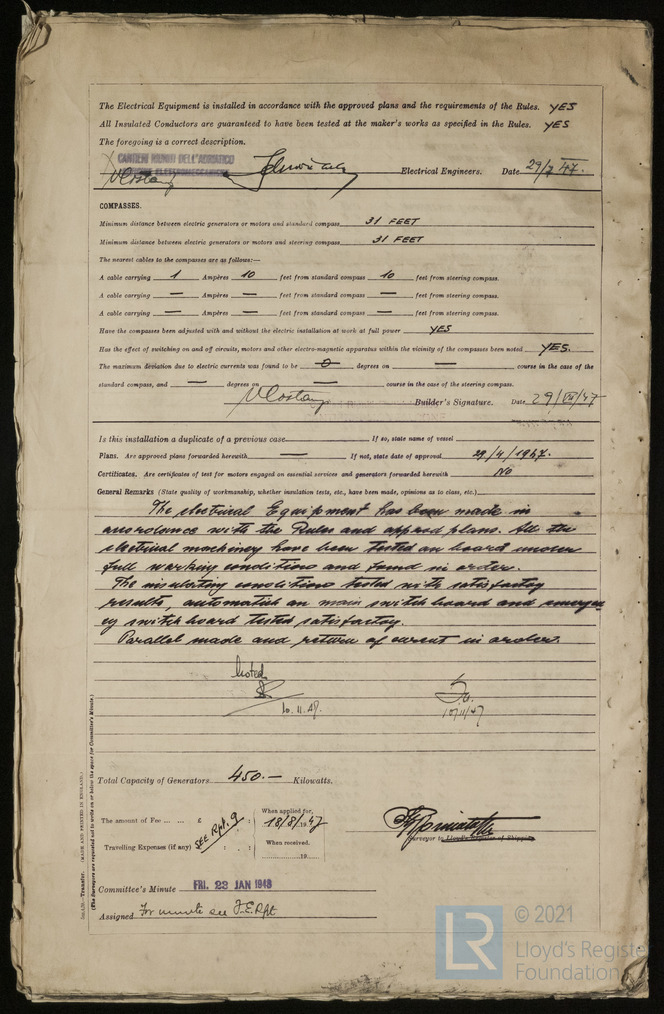 The Electrical Equipment is installed in accordance with the approved plans and the requirements of the Rules. YES
All Insulated Conductors are guaranteed to have been tested at the maker's works as specified in the Rules. YES
The foregoing is a correct description.
CANTIERI RIUNITI DELL'ADRIATICO
Electrical Engineers. Date 29/7 47.
COMPASSES.
Minimum distance between electric generators or motors and standard compass 31 FEET
Minimum distance between electric generators or motors and steering compass 31 FEET
The nearest cables to the compasses are as follows:—
A cable carrying 1 Ampères 10 feet from standard compass 10 feet from steering compass.
A cable carrying — Ampères — feet from standard compass — feet from steering compass.
A cable carrying — Ampères — feet from standard compass — feet from steering compass.
Have the compasses been adjusted with and without the electric installation at work at full power YES
Has the effect of switching on and off circuits, motors and other electro-magnetic apparatus within the vicinity of the compasses been noted YES.
The maximum deviation due to electric currents was found to be 0 degrees on — course in the case of the
standard compass, and — degrees on — course in the case of the steering compass.
Builder's Signature. Date 29/VII/47
Is this installation a duplicate of a previous case If so, state name of vessel
Plans. Are approved plans forwarded herewith — If not, state date of approval 29/4/1947.
Certificates. Are certificates of test for motors engaged on essential services and generators forwarded herewith No
General Remarks (State quality of workmanship, whether insulation tests, etc., have been made, opinions as to class, etc.)
The electrical Equipment has been made in
accordance with the Rules and approd plans. All the
electrical machinery have been tested on board under
full working conditions and found in order.
The insulating conditions tested with satisfactory
results, automatich on main switch board and emergen
cy switch board tested satisfactory.
Parallel made and return of current in order.
Noted
10.11.47.
10/11/47
Total Capacity of Generators 450.— Kilowatts.
The amount of Fee ... ... £ : : When applied for, 18/8/1947
SEE Rpt. 9
Travelling Expenses (if any) £ : : When received, 19
Surveyor to Lloyd's Register of Shipping
Committee's Minute FRI. 23 JAN 1948
Assigned For minute see F.E. Rpt
Transfer. (MADE AND PRINTED IN ENGLAND.)
(The Surveyors are requested not to write on or below the space for Committee's Minute.)
LR
© 2021
Lloyd's Registe
Foundation